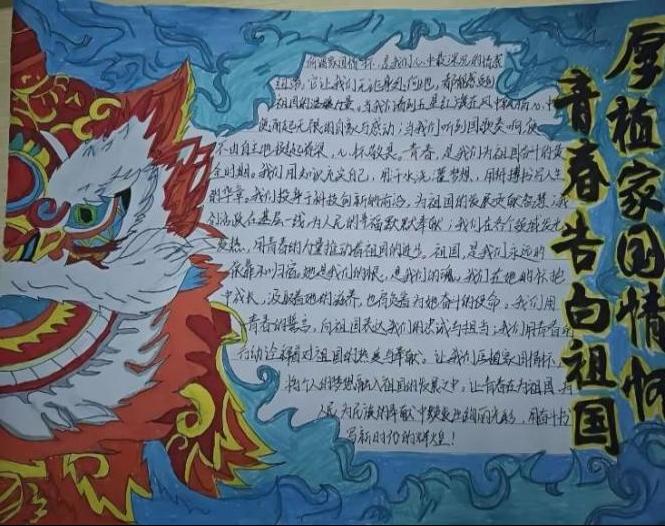 厚植家国情怀
青春告白祖国
家国情怀,是我们心中最深沉的情感
纽带,它让我们无论身处何地,都能感受到
祖国的温暖力量。当我们看到五星红旗在风中飘扬,心中
便涌起无限的自豪与感动;当我们听到国歌奏响,便
不由自主地挺起脊梁,心怀敬意。青春,是我们为祖国奋斗的黄
金时期。我们用知识充实自己,用汗水浇灌梦想,用拼搏书写人生
的华章。我们投身于科技创新的前沿,为祖国的发展贡献智慧;我
们活跃在基层一线,为人民的幸福默默奉献;我们在各个领域发光
发热,用青春的力量推动着祖国的进步。祖国,是我们永远的
依靠和归宿。她是我们的根,是我们的魂。我们在她的怀抱
中成长,汲取着她的滋养,也肩负着为她奋斗的使命。我们用
青春的誓言,向祖国表达我们的忠诚与担当;我们用青春的
行动诠释着对祖国的热爱与奉献。让我们厚植家国情怀,
将个人的梦想融入祖国的发展之中,让青春在为祖国、为
人民、为民族的奉献中绽放出绚丽光彩,用奋斗书
写新时代的辉煌!